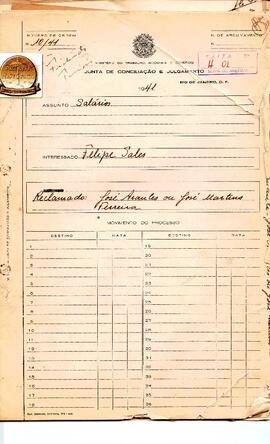 NÚMERO DE ORDEM
10/41
Nº DE ARQUIVAMENTO
MINISTÉRIO DO TRABALHO, INDÚSTRIA E COMÉRCIO
JUNTA DE CONCILIAÇÃO E JULGAMENTO
RIO DE JANEIRO, D. F.
1941
ASSUNTO Salários
INTERESSADO Filipe Sales
Reclamado: José Arantes ou José Martins
Ferreira
MOVIMENTO DO PROCESSO
DESTINO DATA DESTINO DATA
1 19
2 20
3 21
4 22
5 23
6 24
7 25
8 26
9 27
10 28
11 29
12 30
13 31
14 32
15 33
16 34
17 35
18 36